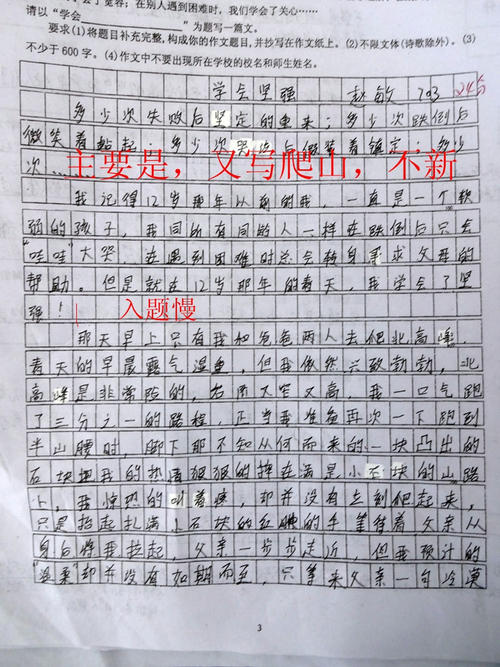 了宽容；在别人遇到困难时，我们学会了关心……
请以“学会____________”为题写一篇文。
要求(1)将题目补充完整，构成你的作文题目，并抄写在作文纸上。(2)不限文体(诗歌除外)。(3)
不少于600字。(4)作文中不要出现所在学校的校名和师生姓名。
学会坚强 赵敏 703 24分
多少次失败后坚定的重来；多少次跌倒后
微笑着站起；多少次后微笑着镇定；多少
次……
主要是，又写爬山，不新
我记得12岁那年以前的我，一直是一个软
弱的孩子，我同所有同龄人一样在跌倒后只会
“哇哇”大哭，在遇到困难时总会转身寻求父母的
帮助。但是就在12岁那年的春天，我学会了坚
强！
入题慢
那天早上只有我和爸爸两人去爬北高峰，
春天的早晨露气湿重，但我依然兴致勃勃，北
高峰是非常陡的，石阶又窄又高，我一口气跑
了三分之一的路程，正当我准备再次一下跑到
半山腰时，脚下那不知从何而来的一块凸出的
石块把我的热情狠狠的摔在满是小石块的山路
上，我惊慌的叫着疼，却并没有立刻爬起来，
只是抬起扎满小石块的红肿的手等待着父亲从
身后将我拉起。父亲一步步走近，但我预计的
“温柔”却并没有如期而至，只等来父亲一句冷漠
3